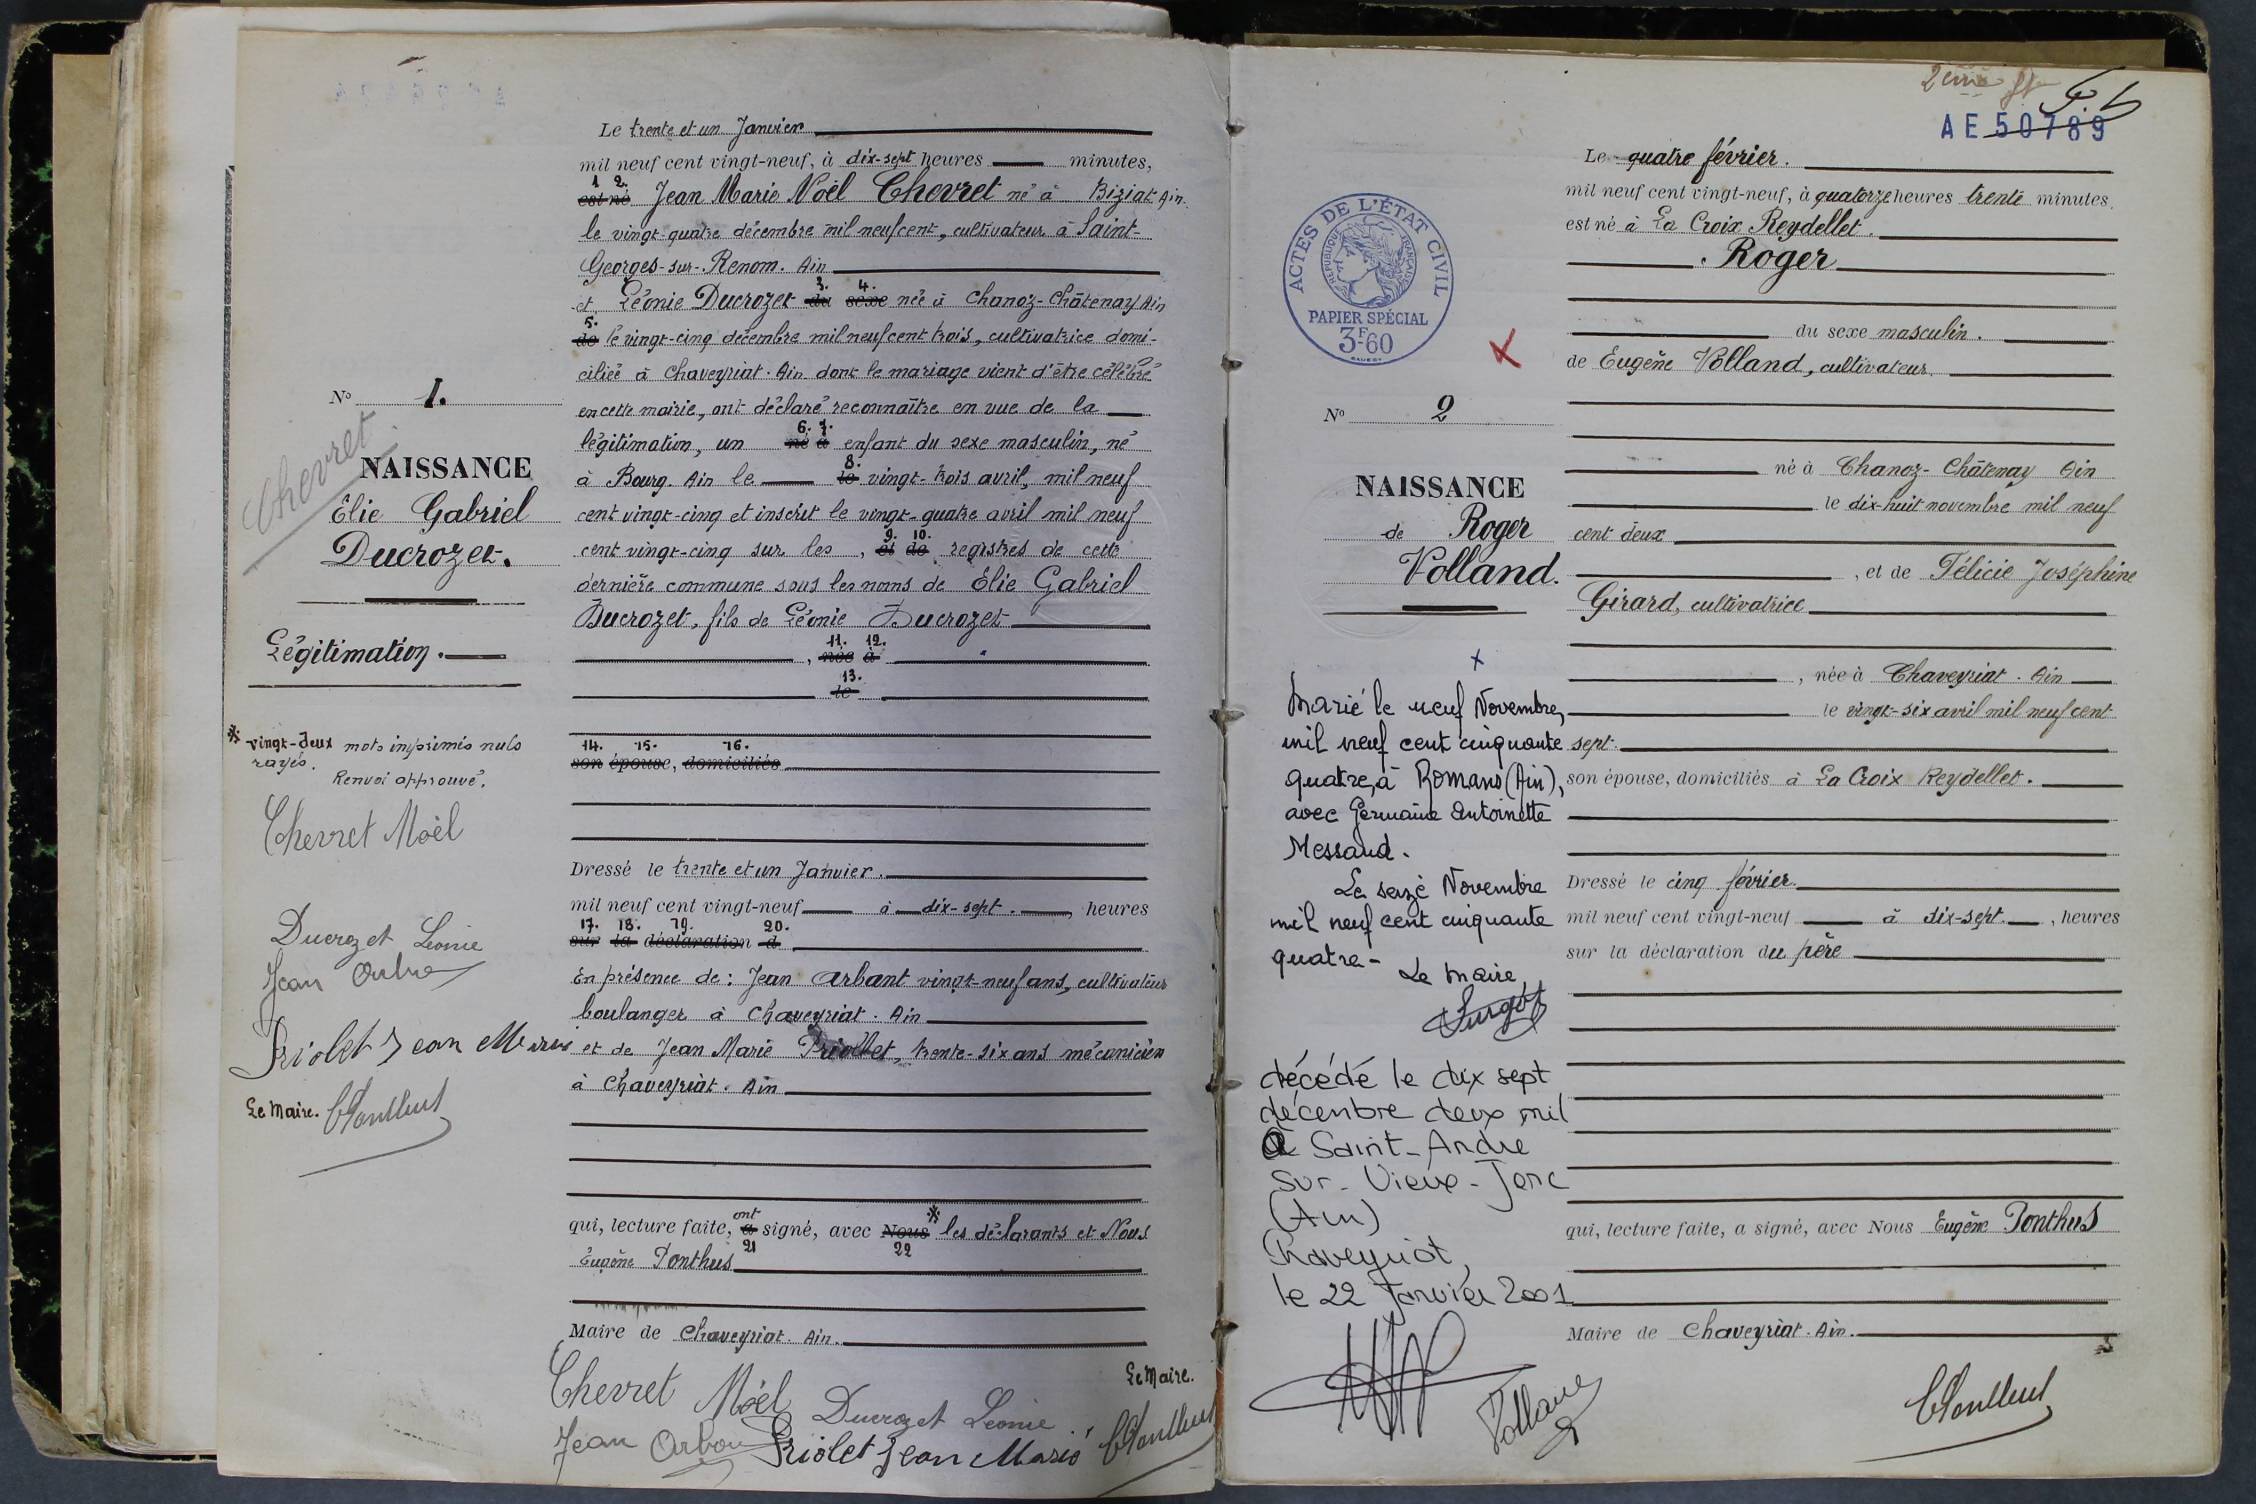 Le trente et un Janvier
mil neuf cent vingt-neuf, à dix-sept heures minutes,
1 2.
est né Jean Marie Noël Chevret né à Biziat Ain.
le vingt-quatre décembre mil neuf cent, cultivateur à Saint-
Georges-sur-Renom. Ain
3. 4.
et Léonie Ducrozet du sexe née à Chanoz-Châtenay Ain
5.
de le vingt-cinq décembre mil neuf cent trois, cultivatrice domi-
ciliée à Chaveyriat. Ain dont le mariage vient d'être célébré
en cette mairie, ont déclaré reconnaître en vue de la
6. 7.
légitimation, un né à enfant du sexe masculin, né
8.
à Bourg Ain le le vingt-trois avril, mil neuf
cent vingt-cinq et inscrit le vingt-quatre avril mil neuf
9. 10.
cent vingt-cinq sur les , et de registres de cette
dernière commune sous les noms de Élie Gabriel
Ducrozet, fils de Léonie Ducrozet
11. 12.
, née à
13.
le
14. 15. 16.
son épouse, domiciliés
Dressé le trente et un Janvier.
mil neuf cent vingt-neuf à dix-sept. , heures
17. 18. 19. 20.
sur la déclaration d
En présence de : Jean Arbant vingt-neuf ans, cultivateur
boulanger à Chaveyriat. Ain
et de Jean Marie Priollet, trente-six ans mécanicien
à Chaveyriat. Ain
ont
qui, lecture faite, a signé, avec Nous * les déclarants et Nous
21 22
Eugène Ponthus
Maire de Chaveyriat. Ain.
Le Maire.
Chevret Noël Ducrozet Léonie
Jean Priolet Jean Marie
No 1.
Chevret
NAISSANCE
Élie Gabriel
Ducrozet.
Légitimation.
* vingt-deux mots imprimés nuls
rayés.
Renvoi approuvé.
Chevret Noël
Ducrozet Léonie
Jean
Priolet Jean Marie
Le Maire.
2ème ft
AE 50789
Le quatre février.
mil neuf cent vingt-neuf, à quatorze heures trente minutes
est né à La Croix Reydellet.
Roger
du sexe masculin.
de Eugène Volland, cultivateur
né à Chanoz-Châtenay Ain
le dix-huit novembre mil neuf
cent deux
, et de Félicie Joséphine
Girard, cultivatrice
, née à Chaveyriat. Ain
le vingt-six avril mil neuf cent
sept
son épouse, domiciliés à La Croix Reydellet.
Dressé le cinq février
mil neuf cent vingt-neuf à dix-sept. , heures
sur la déclaration du père
qui, lecture faite, a signé, avec Nous Eugène Ponthus
Maire de Chaveyriat. Ain.
ACTES DE L'ÉTAT CIVIL
RÉPUBLIQUE FRANÇAISE
PAPIER SPÉCIAL
3F-60
No 2
NAISSANCE
de Roger
Volland.
Marié le neuf Novembre,
mil neuf cent cinquante
quatre, à Romans (Ain),
avec Germaine Antoinette
Messaud.
Le seize Novembre
mil neuf cent cinquante
quatre-
Le Maire,
décédé le dix sept
décembre deux mil
à Saint-André
sur-Vieux-Jonc
(Ain)
Chaveyriat,
le 22 Janvier 2001
Volland